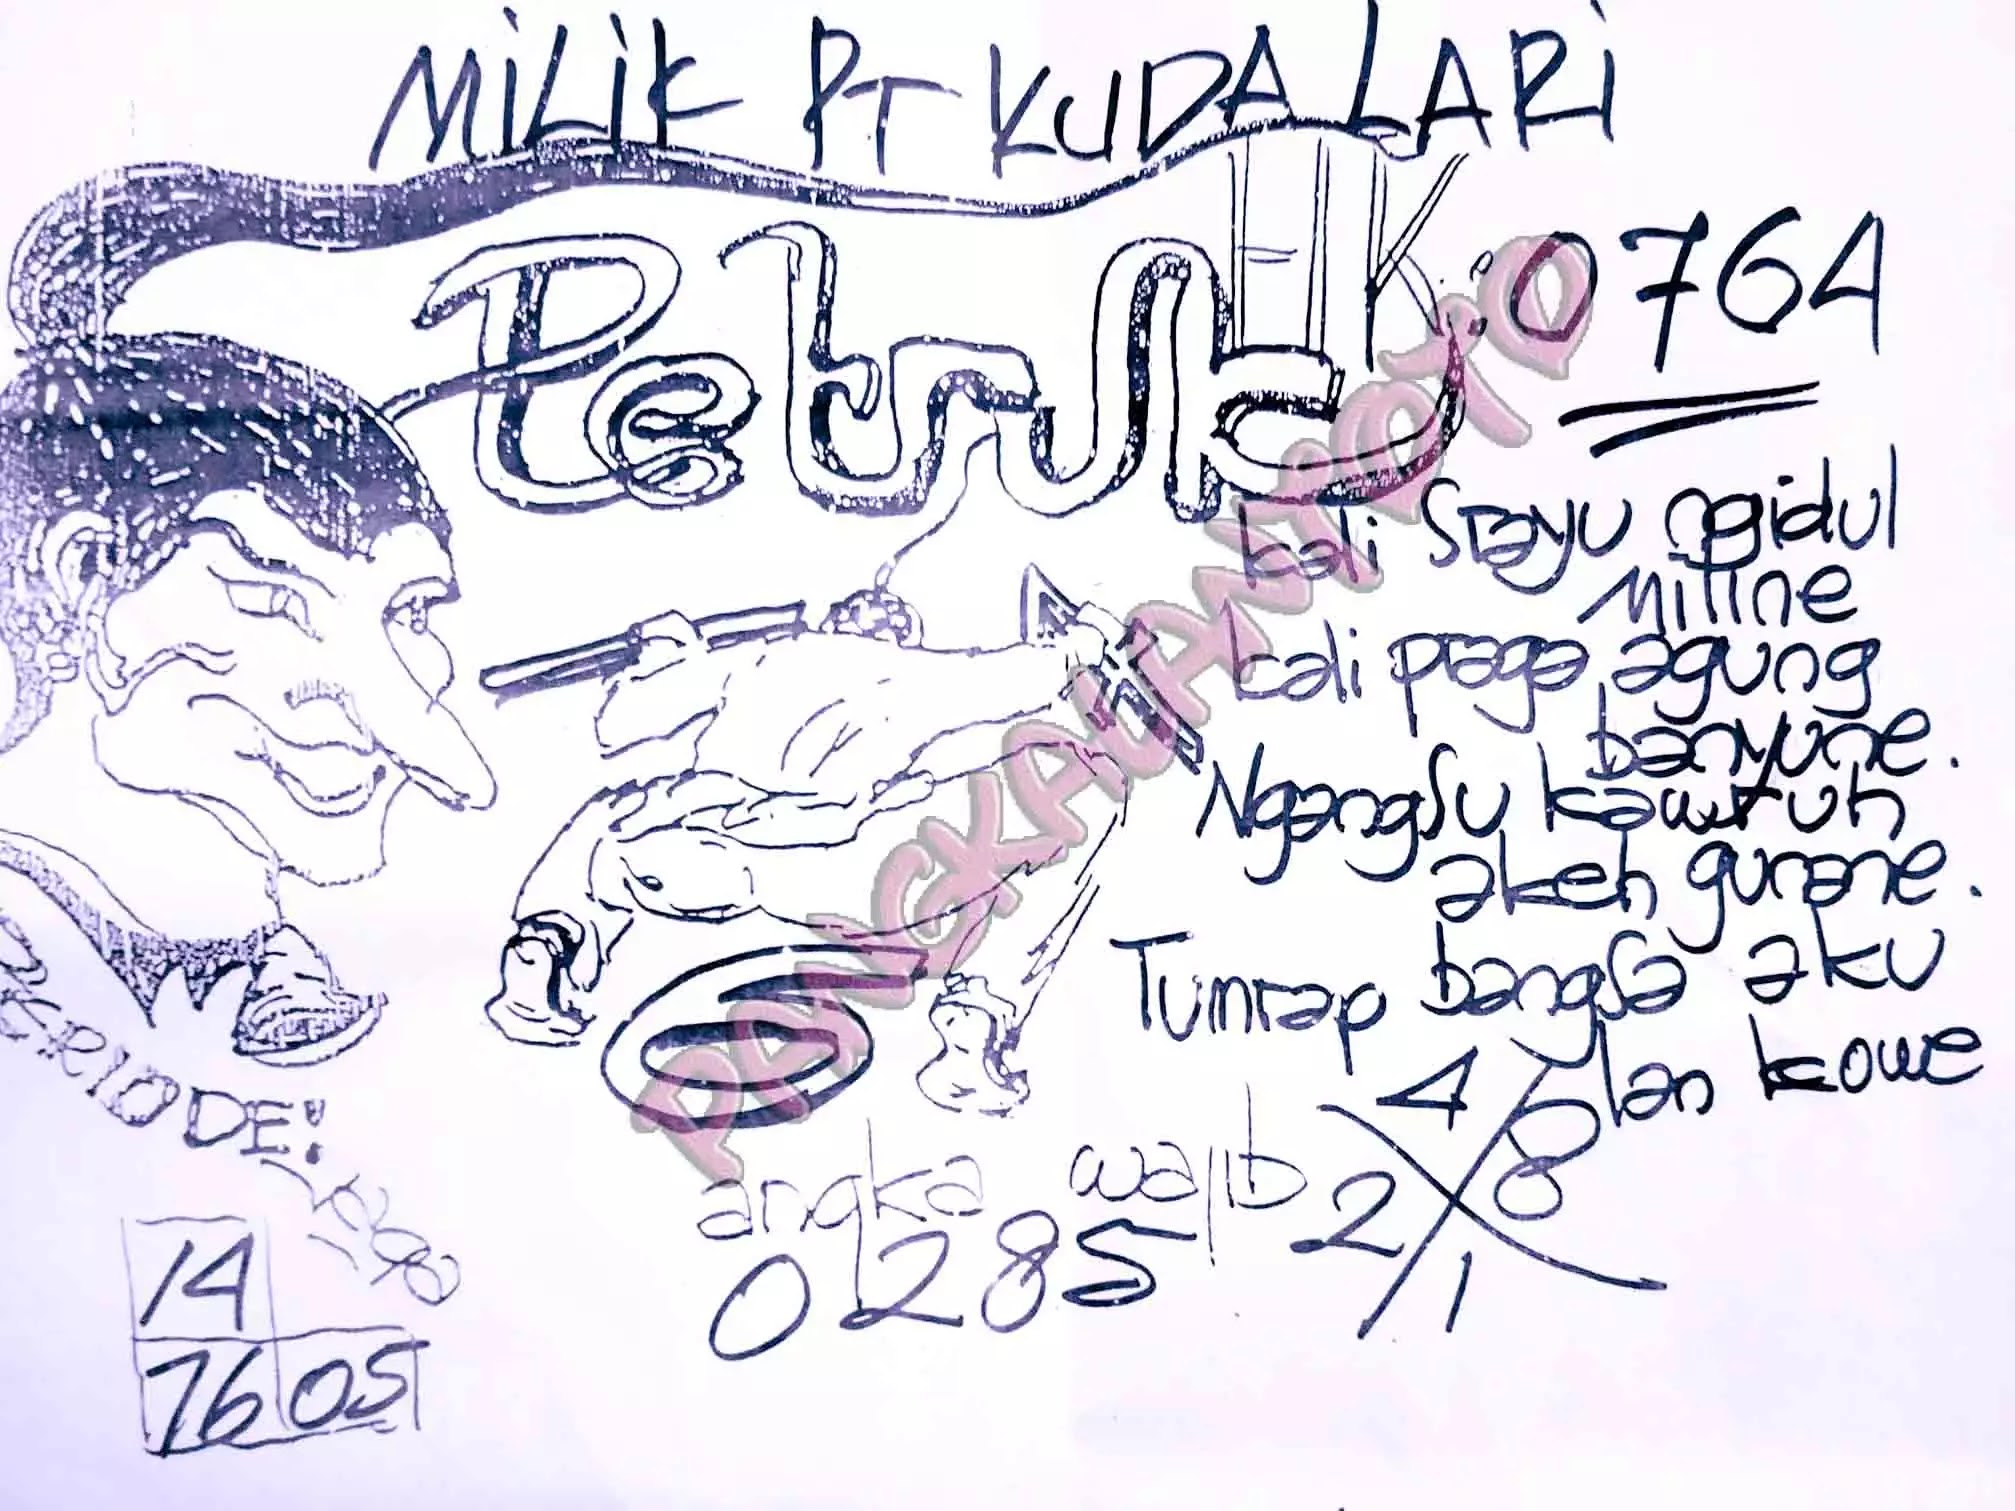 MILIK PT KUDA LARI
Petruk
HK: 0764
kali Srayu ngidul
miline
kali praga agung
banyune.
Ngangsu kawruh
akeh gurune.
Tumrap bangsa aku
lan kowe
PERIODE:
angka wajib
0285
4
2 8
1
14
76 05
PANGKALANTOTO